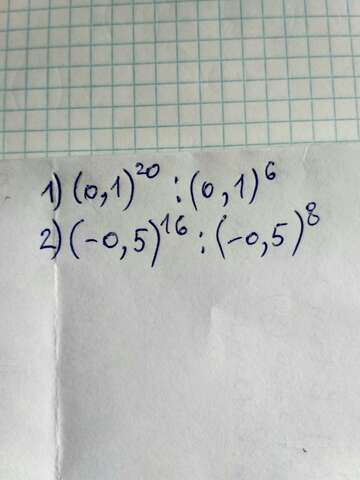 1) (0,1)²⁰ : (0,1)⁶
2) (-0,5)¹⁶ : (-0,5)⁸